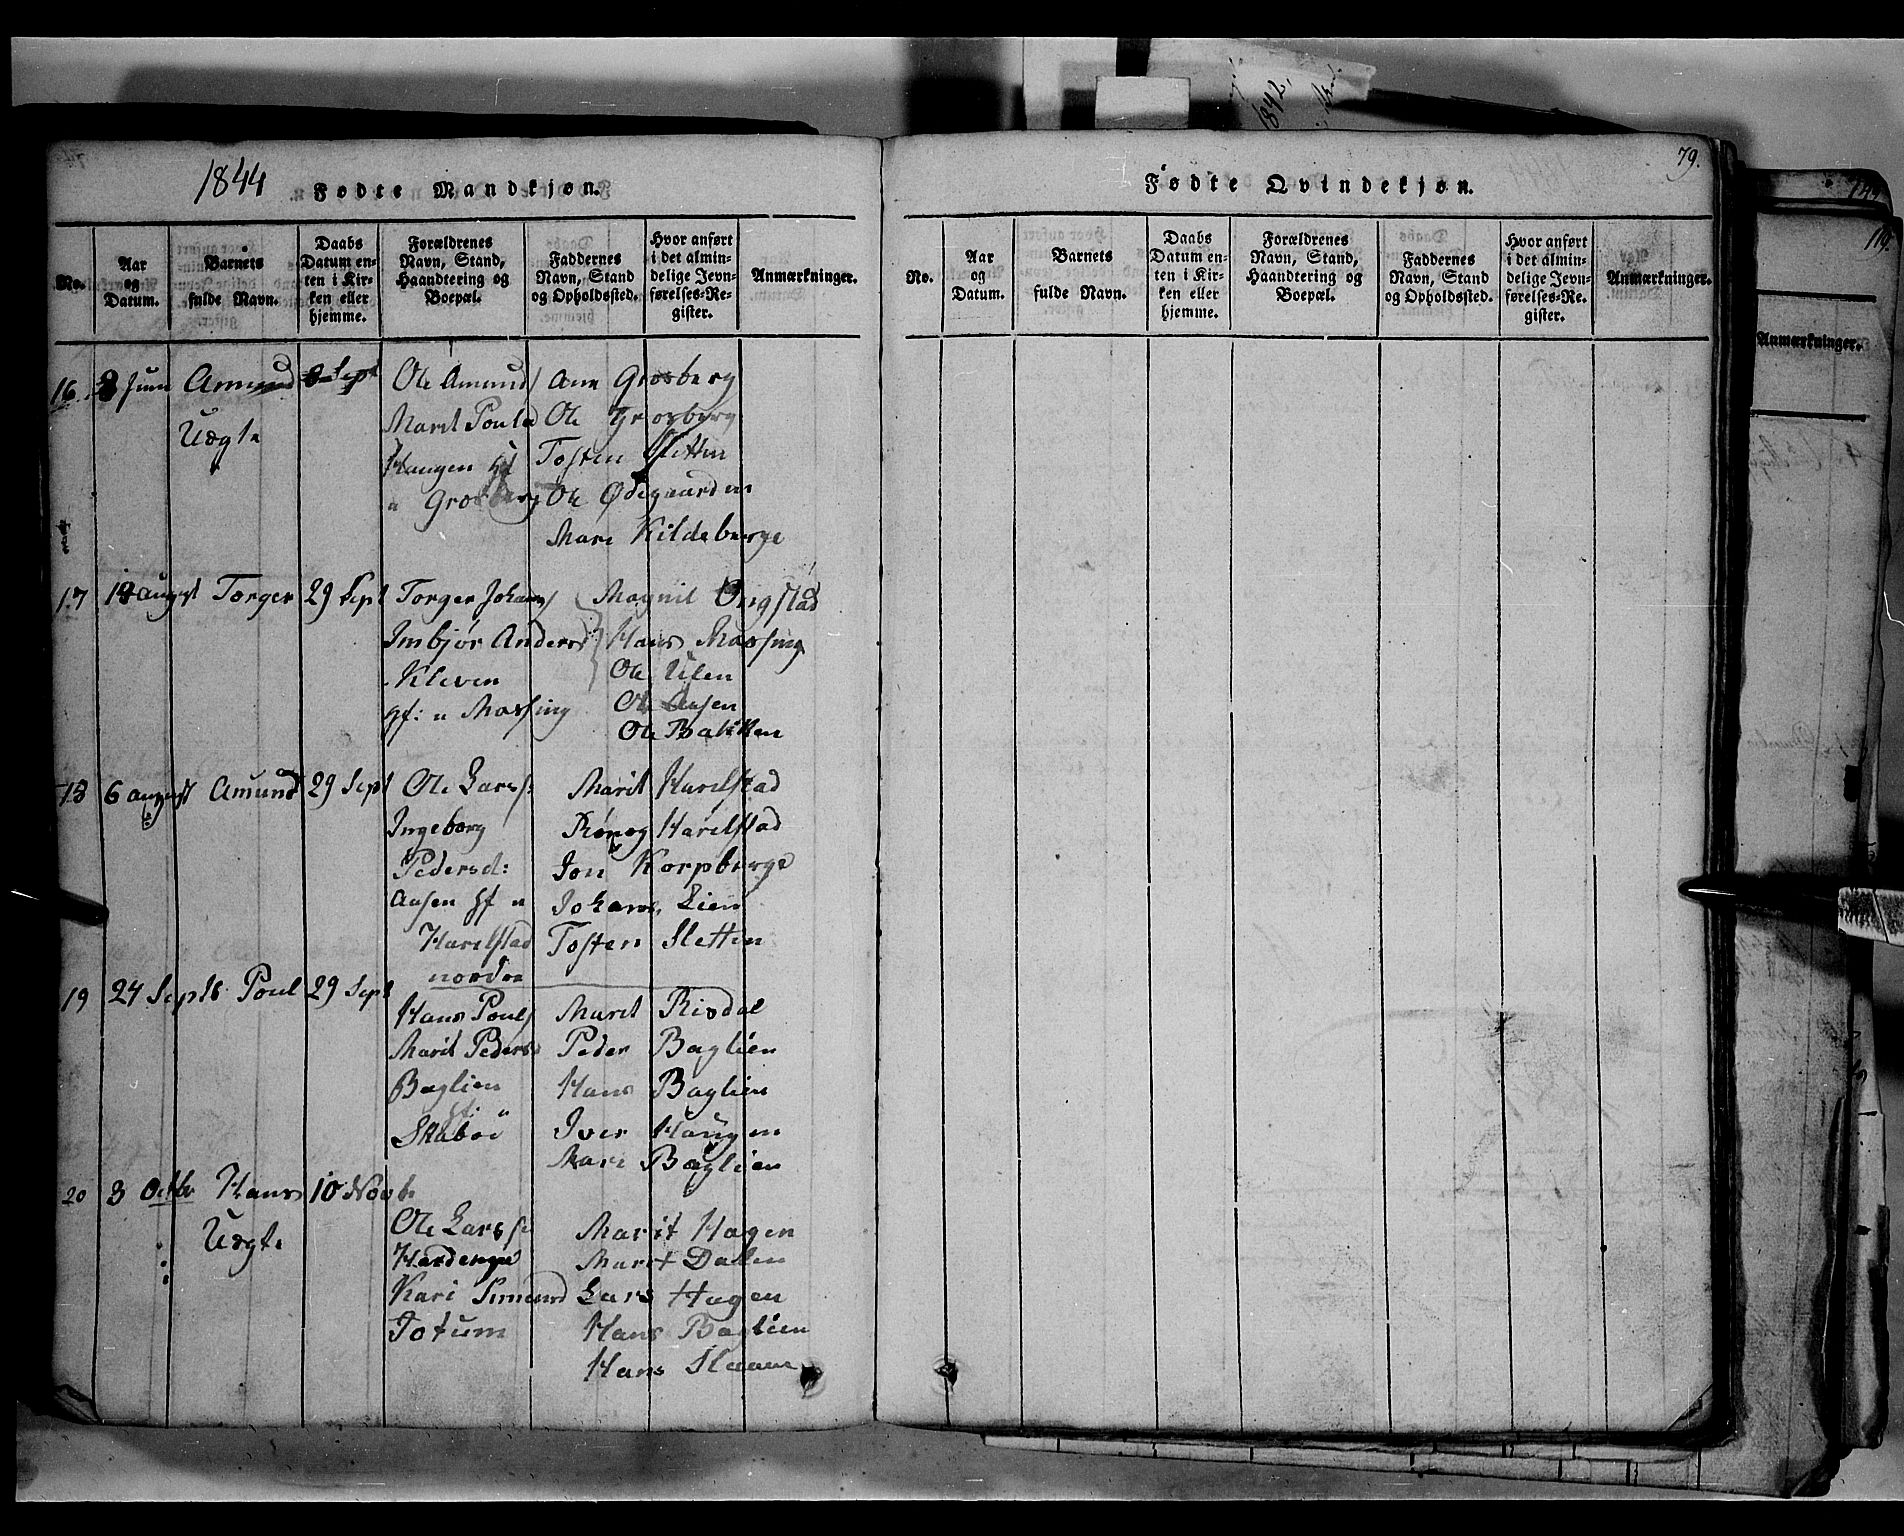 1844
Fødte Mandkjøn.
No.
Aar
og
Datum.
Barnets
fulde Navn.
Daabs
Datum en-
ten i Kir-
ken eller
hjemme.
Forældrenes
Navn, Stand,
Haandtering og
Boepæl.
Faddernes
Navn, Stand
og Opholdssted.
Hvor anført
i det almin-
delige Jevn-
førelses-Re-
gister.
Anmærkninger.
16 8 Juni Amund Sept
Uægte
Ole Amunds
Marit Pouls
Haugen gf
u Grosberg
Ane Grosberg
Ole Grosberg
Tosten Sletten
Ole Ødegaarden
Mari Kildeberge
17 19 august Torger 29 Sept
Torger Johans
Imbjør Anders
Kleven
gf: u Massing
Magnil Ongstad
Hans Massing
Ole Ulen
Ole Aasen
Ole Bakken
18 6 august Amund 29 Sept
Ole Larss:
Ingeborg
Pedersd:
Aasen gf u
Harelstad
nordre
Marit Harelstad
Rønog Harelstad
Jon Korpberge
Johans Lien
Tosten Sletten
19 24 Septb Poul 29 Sept
Hans Pouls
Marit Peders
Baglien
gf: u
Skaboe
Marit Risdal
Peder Baglien
Hans Baglien
Iver Haugen
Mari Baglien
20 3 Octbr Hans 10 Novb
Uægte
Ole Larss:
Hardengen
Kari Simund
Jotum
Marit Hagen
Marit Dalen
Lars Hagen
Hans Baglien
Hans Slaaen
79.
Fødte Qvindekjøn.
No.
Aar
og
Datum.
Barnets
fulde Navn.
Daabs
Datum en-
ten i Kir-
ken eller
hjemme.
Forældrenes
Navn, Stand,
Haandtering og
Boepæl.
Faddernes
Navn, Stand
og Opholdssted.
Hvor anført
i det almin-
delige Jevn-
førelses-Re-
gister.
Anmærkninger.
1842,
119.
Anmærkninger.